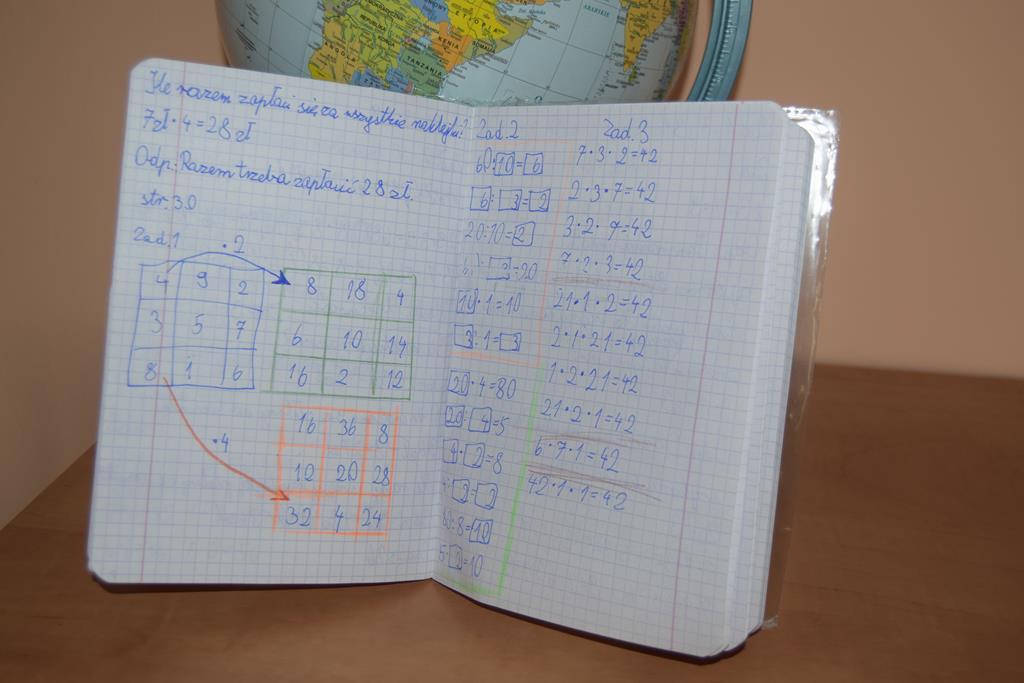 Ile razem zapłaci się za wszystkie naklejki?
7 zł · 4 = 28 zł
Odp.: Razem trzeba zapłacić 28 zł.
str. 30
Zad. 1
· 2
4 9 2
3 5 7
8 1 6
8 18 4
6 10 14
16 2 12
· 4
16 36 8
12 20 28
32 4 24
Zad. 2
60:10=6
6:3=2
20:10=2
=20
10·1=10
3:1=3
20·4=80
20:4=5
4·2=8
2=2
:8=10
5·2=10
Zad. 3
7·3·2=42
2·3·7=42
3·2·7=42
7·2·3=42
21·1·2=42
2·1·21=42
1·2·21=42
21·2·1=42
6·7·1=42
42·1·1=42
ETIOPIA
KENIA
SOMALIA
TANZANIA
ANGOLA